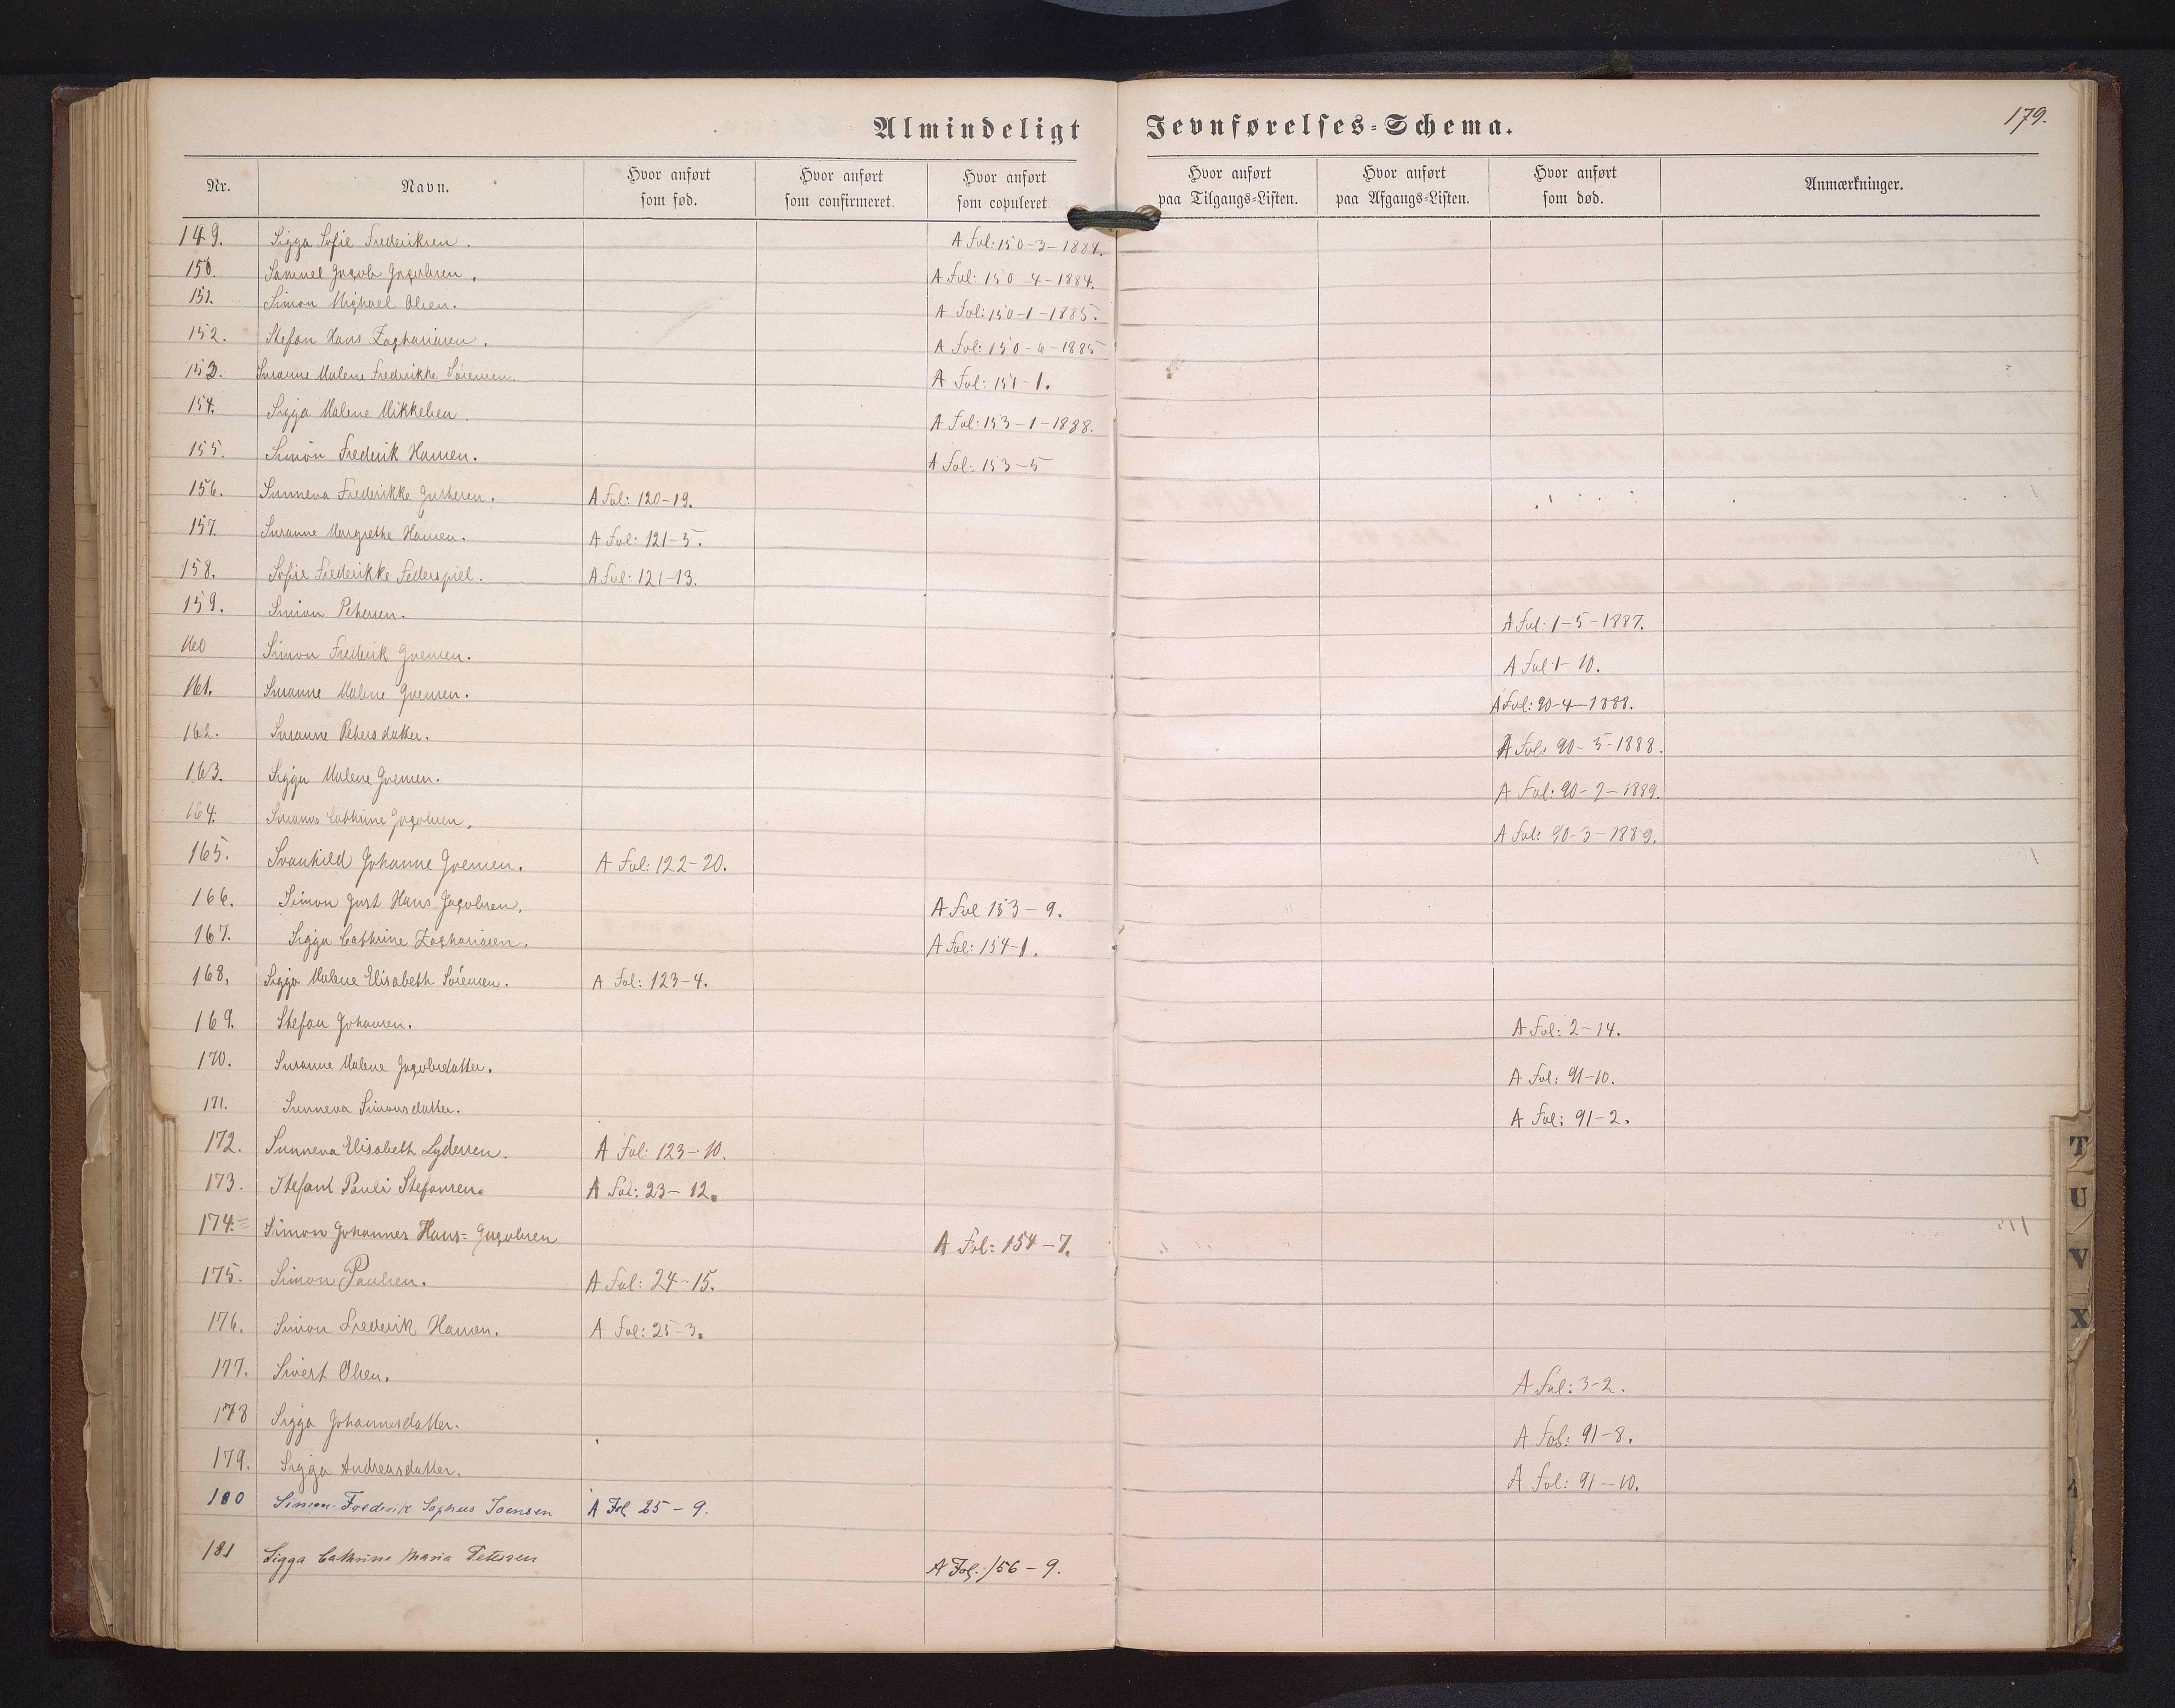 Almindeligt Jevnførelses=Schema.
179.
Nr. Navn. Hvor anført som fød. Hvor anført som confirmeret. Hvor anført som copuleret. Hvor anført paa Tilgangs=Listen. Hvor anført paa Afgangs=Listen. Hvor anført som død. Anmærkninger.
149. Sigga Sofie Frederiksen. A Fol: 150-3-1884.
150. Samuel Jacob Jacobsen. A Fol: 150-4-1884.
151. Simon Michael Olsen. A Fol: 150-1-1885.
152. Stefan Hans Zachariasen. A Fol: 150-6-1885
153. Susanne Malene Frederikke Sörensen. A Fol: 151-1.
154. Sigga Malene Mikkelsen. A Fol: 153-1-1888.
155. Simon Frederik Hansen. A Fol: 153-5
156. Sunneva Frederikke A Fol: 120-19.
157. Susanne Margrethe Hansen. A Fol: 121-5.
158. Sofie Frederikke Federspiel. A Fol: 121-13.
159. Simon Petersen. A Fol: 1-5-1887.
160 Simon Frederik Joensen. A Fol 1-10.
161. Susanne Malene Joensen. A Fol: 90-4-1888.
162. Susanne Petersdatter. A Fol: 90-5-1888.
163. Sigga Malene Joensen. A Fol: 90-2-1889.
164. Susanne Cathrine Jacobsen. A Fol: 90-3-1889.
165. Svanhild Johanne Joensen. A Fol: 122-20.
166. Simon Just Hans Jacobsen. A Fol 153-9.
167. Sigga Cathrine Zachariasen. A Fol: 154-1.
168. Sigga Malene Elisabeth Sörensen. A Fol: 123-4.
169. Stefan Johansen. A Fol: 2-14.
170. Susanne Malene Jacobsdatter. A Fol: 91-10.
171. Sunneva Simonsdatter. A Fol: 91-2.
172. Sunneva Elisabeth Lydersen. A Fol: 123-10.
173. Stefant Pauli Stefansen. A Fol: 23-12.
174.= Simon Johannes Hans= Jacobsen A Fol: 154-7.
175. Simon Paulsen. A Fol: 24-15.
176. Simon Frederik Hansen. A Fol: 25-3.
177. Sivert Olsen. A Fol: 3-2.
178 Sigga Johannesdatter. A Fol: 91-8.
179. Sigga Andreasdatter. A Fol: 91-10.
180 Simon Frederik Sophus Joensen A Fol 25-9.
181 Sigga Cathrine Maria Petersen A Fol: 156-9.
T
U
V
X